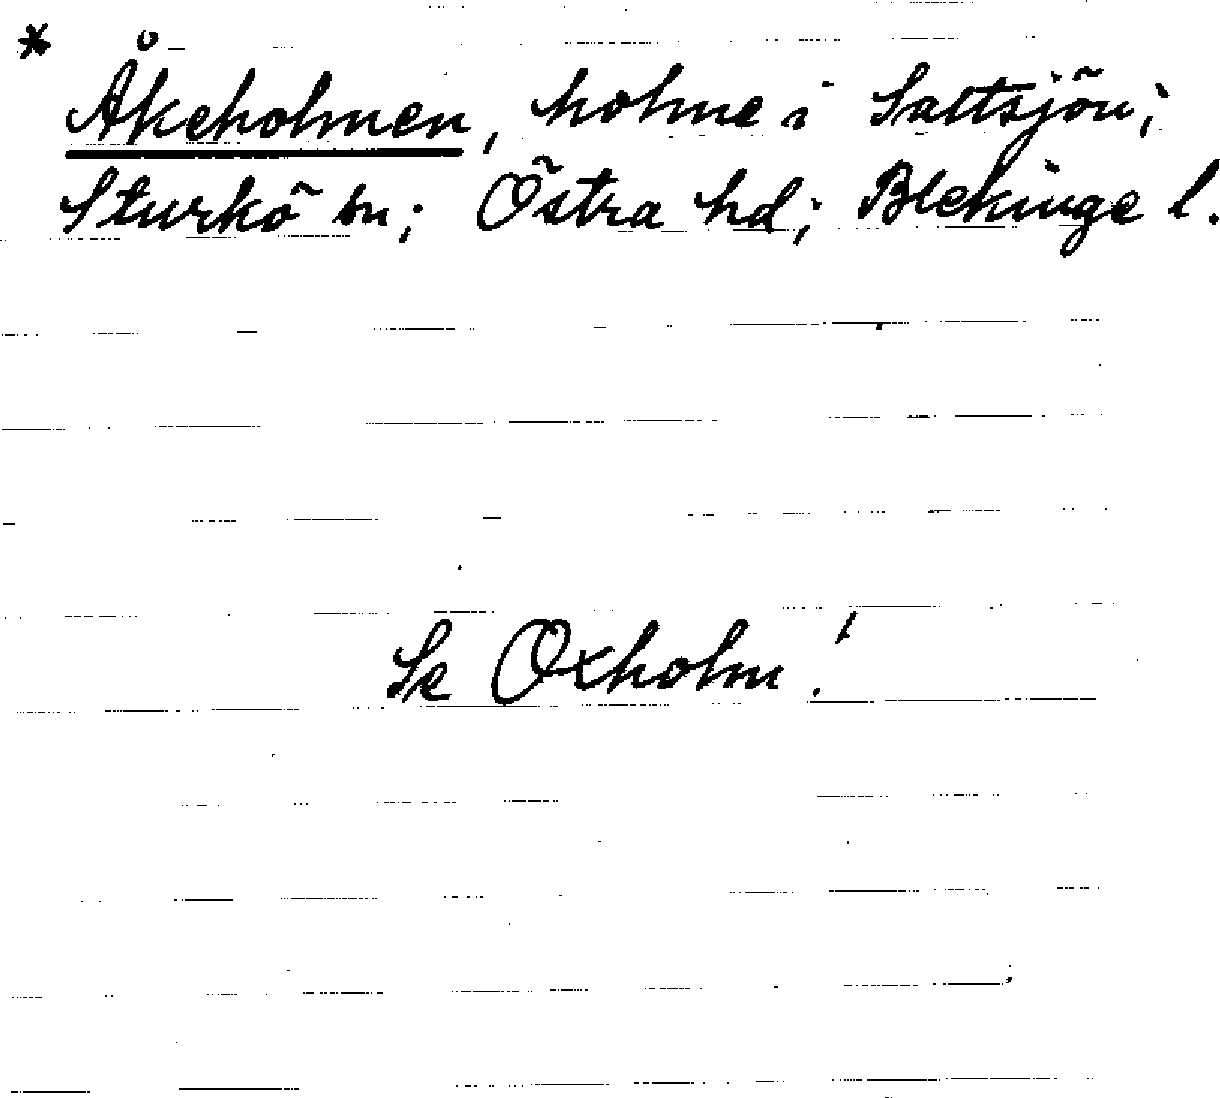 * Åkeholmen, holme i Saltsjön;
Sturkö sn; Östra hd; Blekinge l.
Se Oxholm!